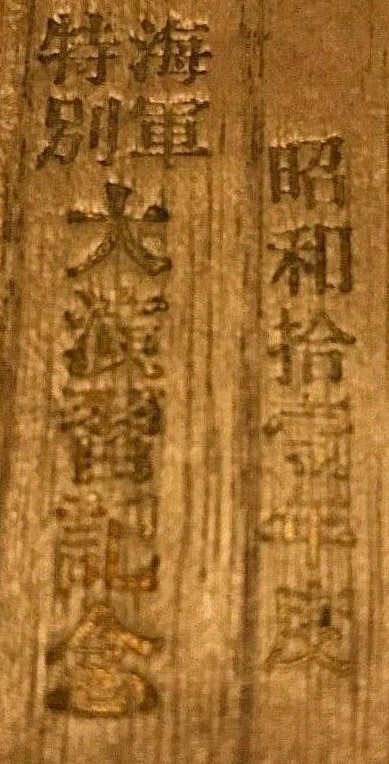 昭和拾壹年度
海軍特別大演習記念